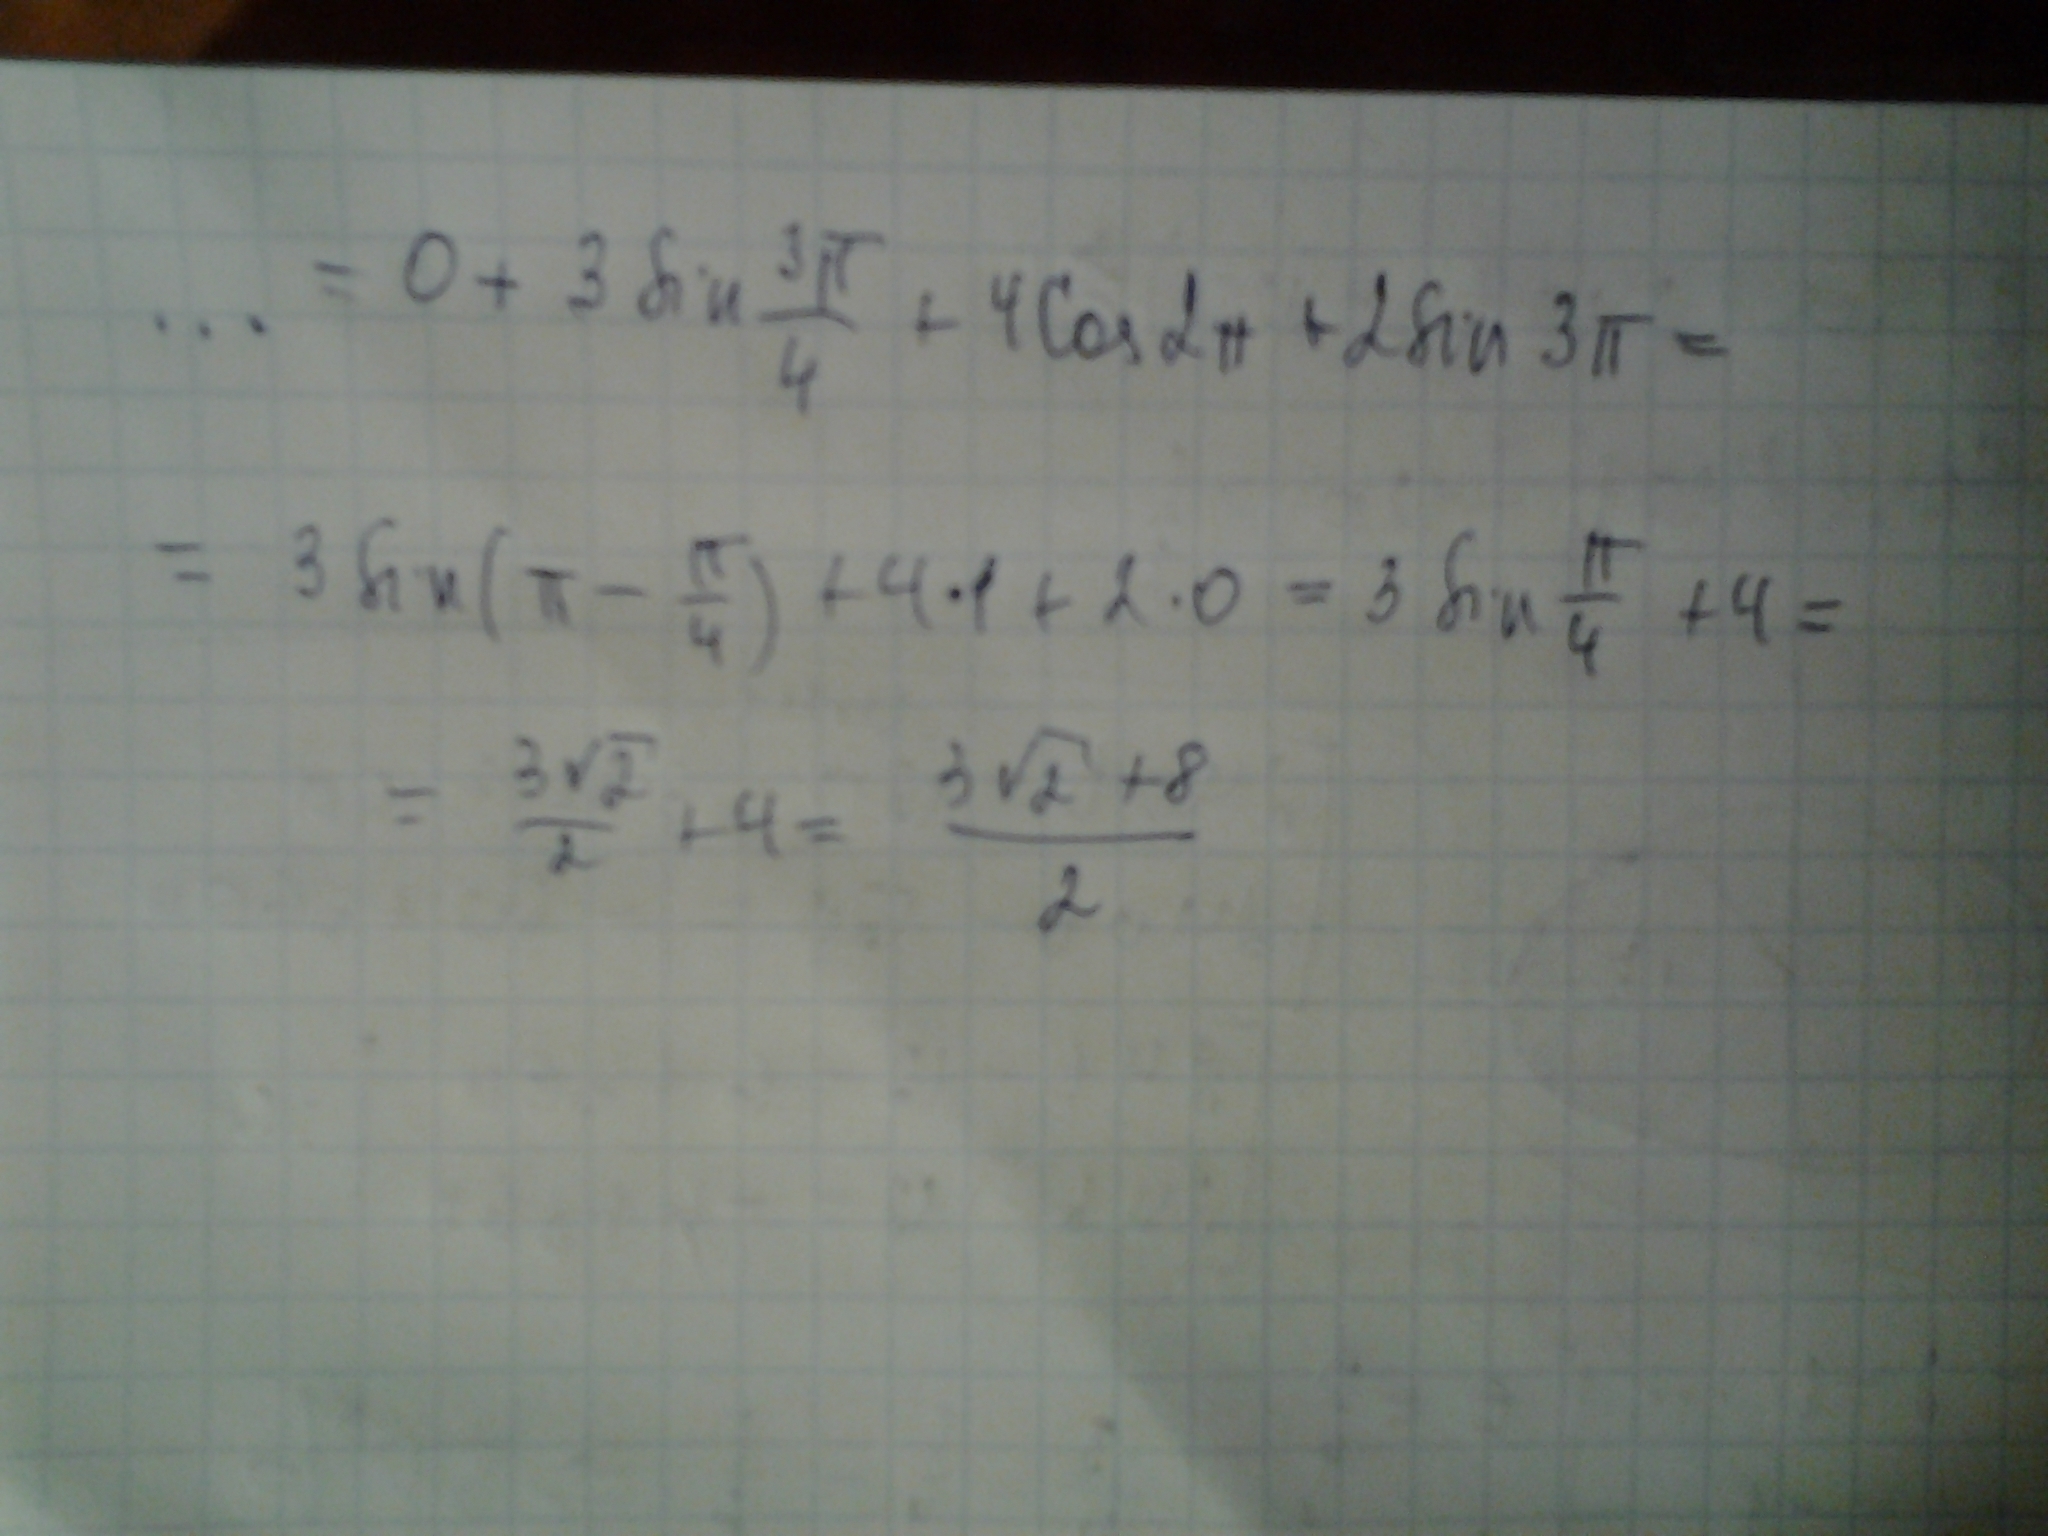 ... = 0 + 3 sin 3π/4 + 4 cos 2π + 2 sin 3π =
= 3 sin(π − π/4) + 4·1 + 2·0 = 3 sin π/4 + 4 =
= 3√2/2 + 4 = (3√2 + 8)/2